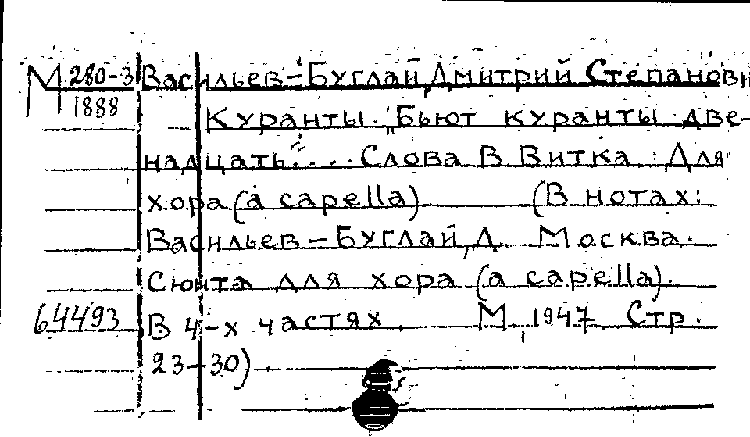 М 280-3 Васильев-Буглай, Дмитрий Степанович
1888
Куранты. "Бьют куранты две-
надцать"... Слова В Витка. Для
хора (a capella) (В нотах:
Васильев-Буглай, Д. Москва.
Сюита для хора (a capella).
64493 В 4-х частях. М, 1947 Стр.
23-30).